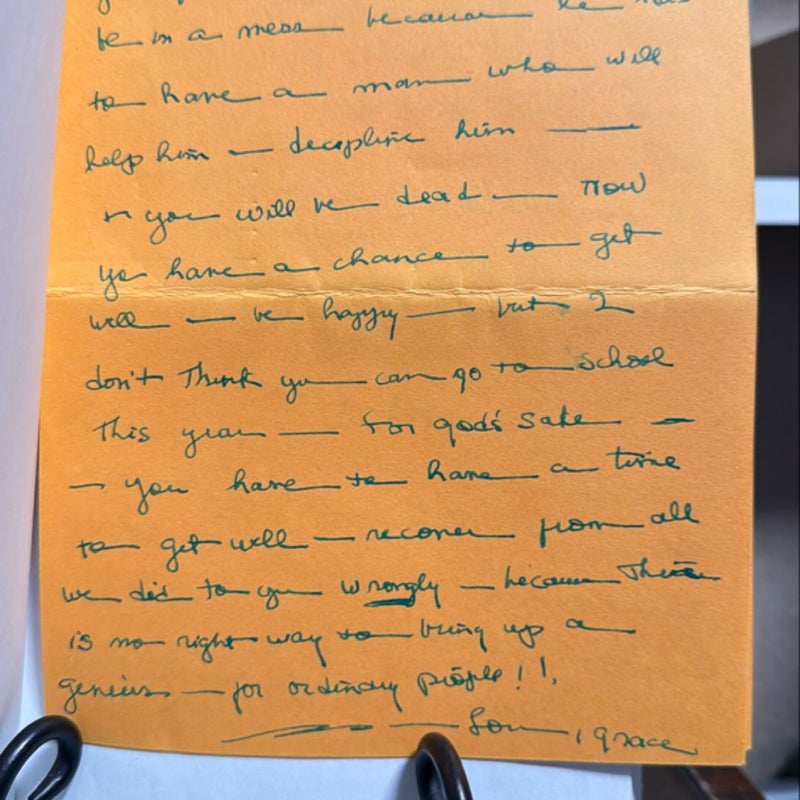 be in a mess because he has
to have a man who will
help him — decipline him —
or you will be dead — Now
you have a chance to get
well — be happy — but I
don't Think you can go to School
This year — For god's Sake —
— you have to have a time
to get well — recover from all
we did to you wrongly — because There
is no right way to bring up a
genius — for ordinary people!!
— Love, Grace